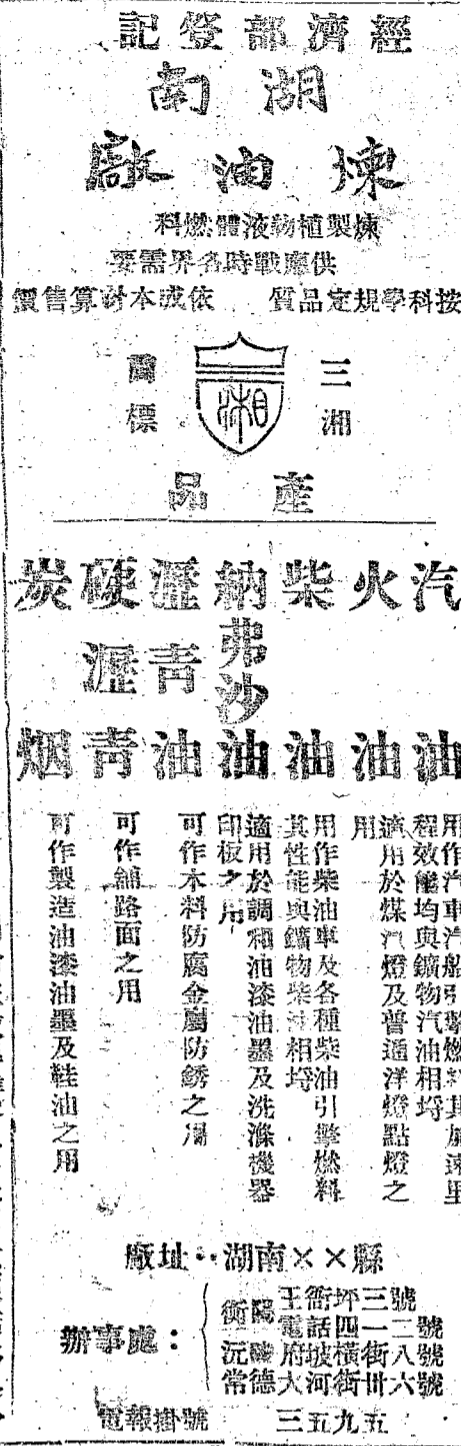 經濟部登記
湖南
煉油廠
煉製植物液體燃料
供應戰時各界需要
按科學規定品質 依成本計算售價
三湘
湘
商標
產品
汽油
用作汽車汽船引擎燃料其
速里
程效能均與鑛物汽油相埒
火油
適用於煤汽燈及普通洋燈點燈之
用
柴油
用作柴油車及各種柴油引擎燃料
其性能與鑛物柴油相埒
納弗沙油
適用於調和油漆油墨及洗滌機器
印板之用
瀝青油
可作木料防腐金屬防銹之用
硬瀝青
可作舖路面之用
炭烟
可作製造油漆油墨及鞋油之用
廠址：湖南××縣
辦事處：
衡陽王衙坪三號
電話四一二號
沅陵府坡橫街八號
常德大河街卅六號
電報掛號 三五九五